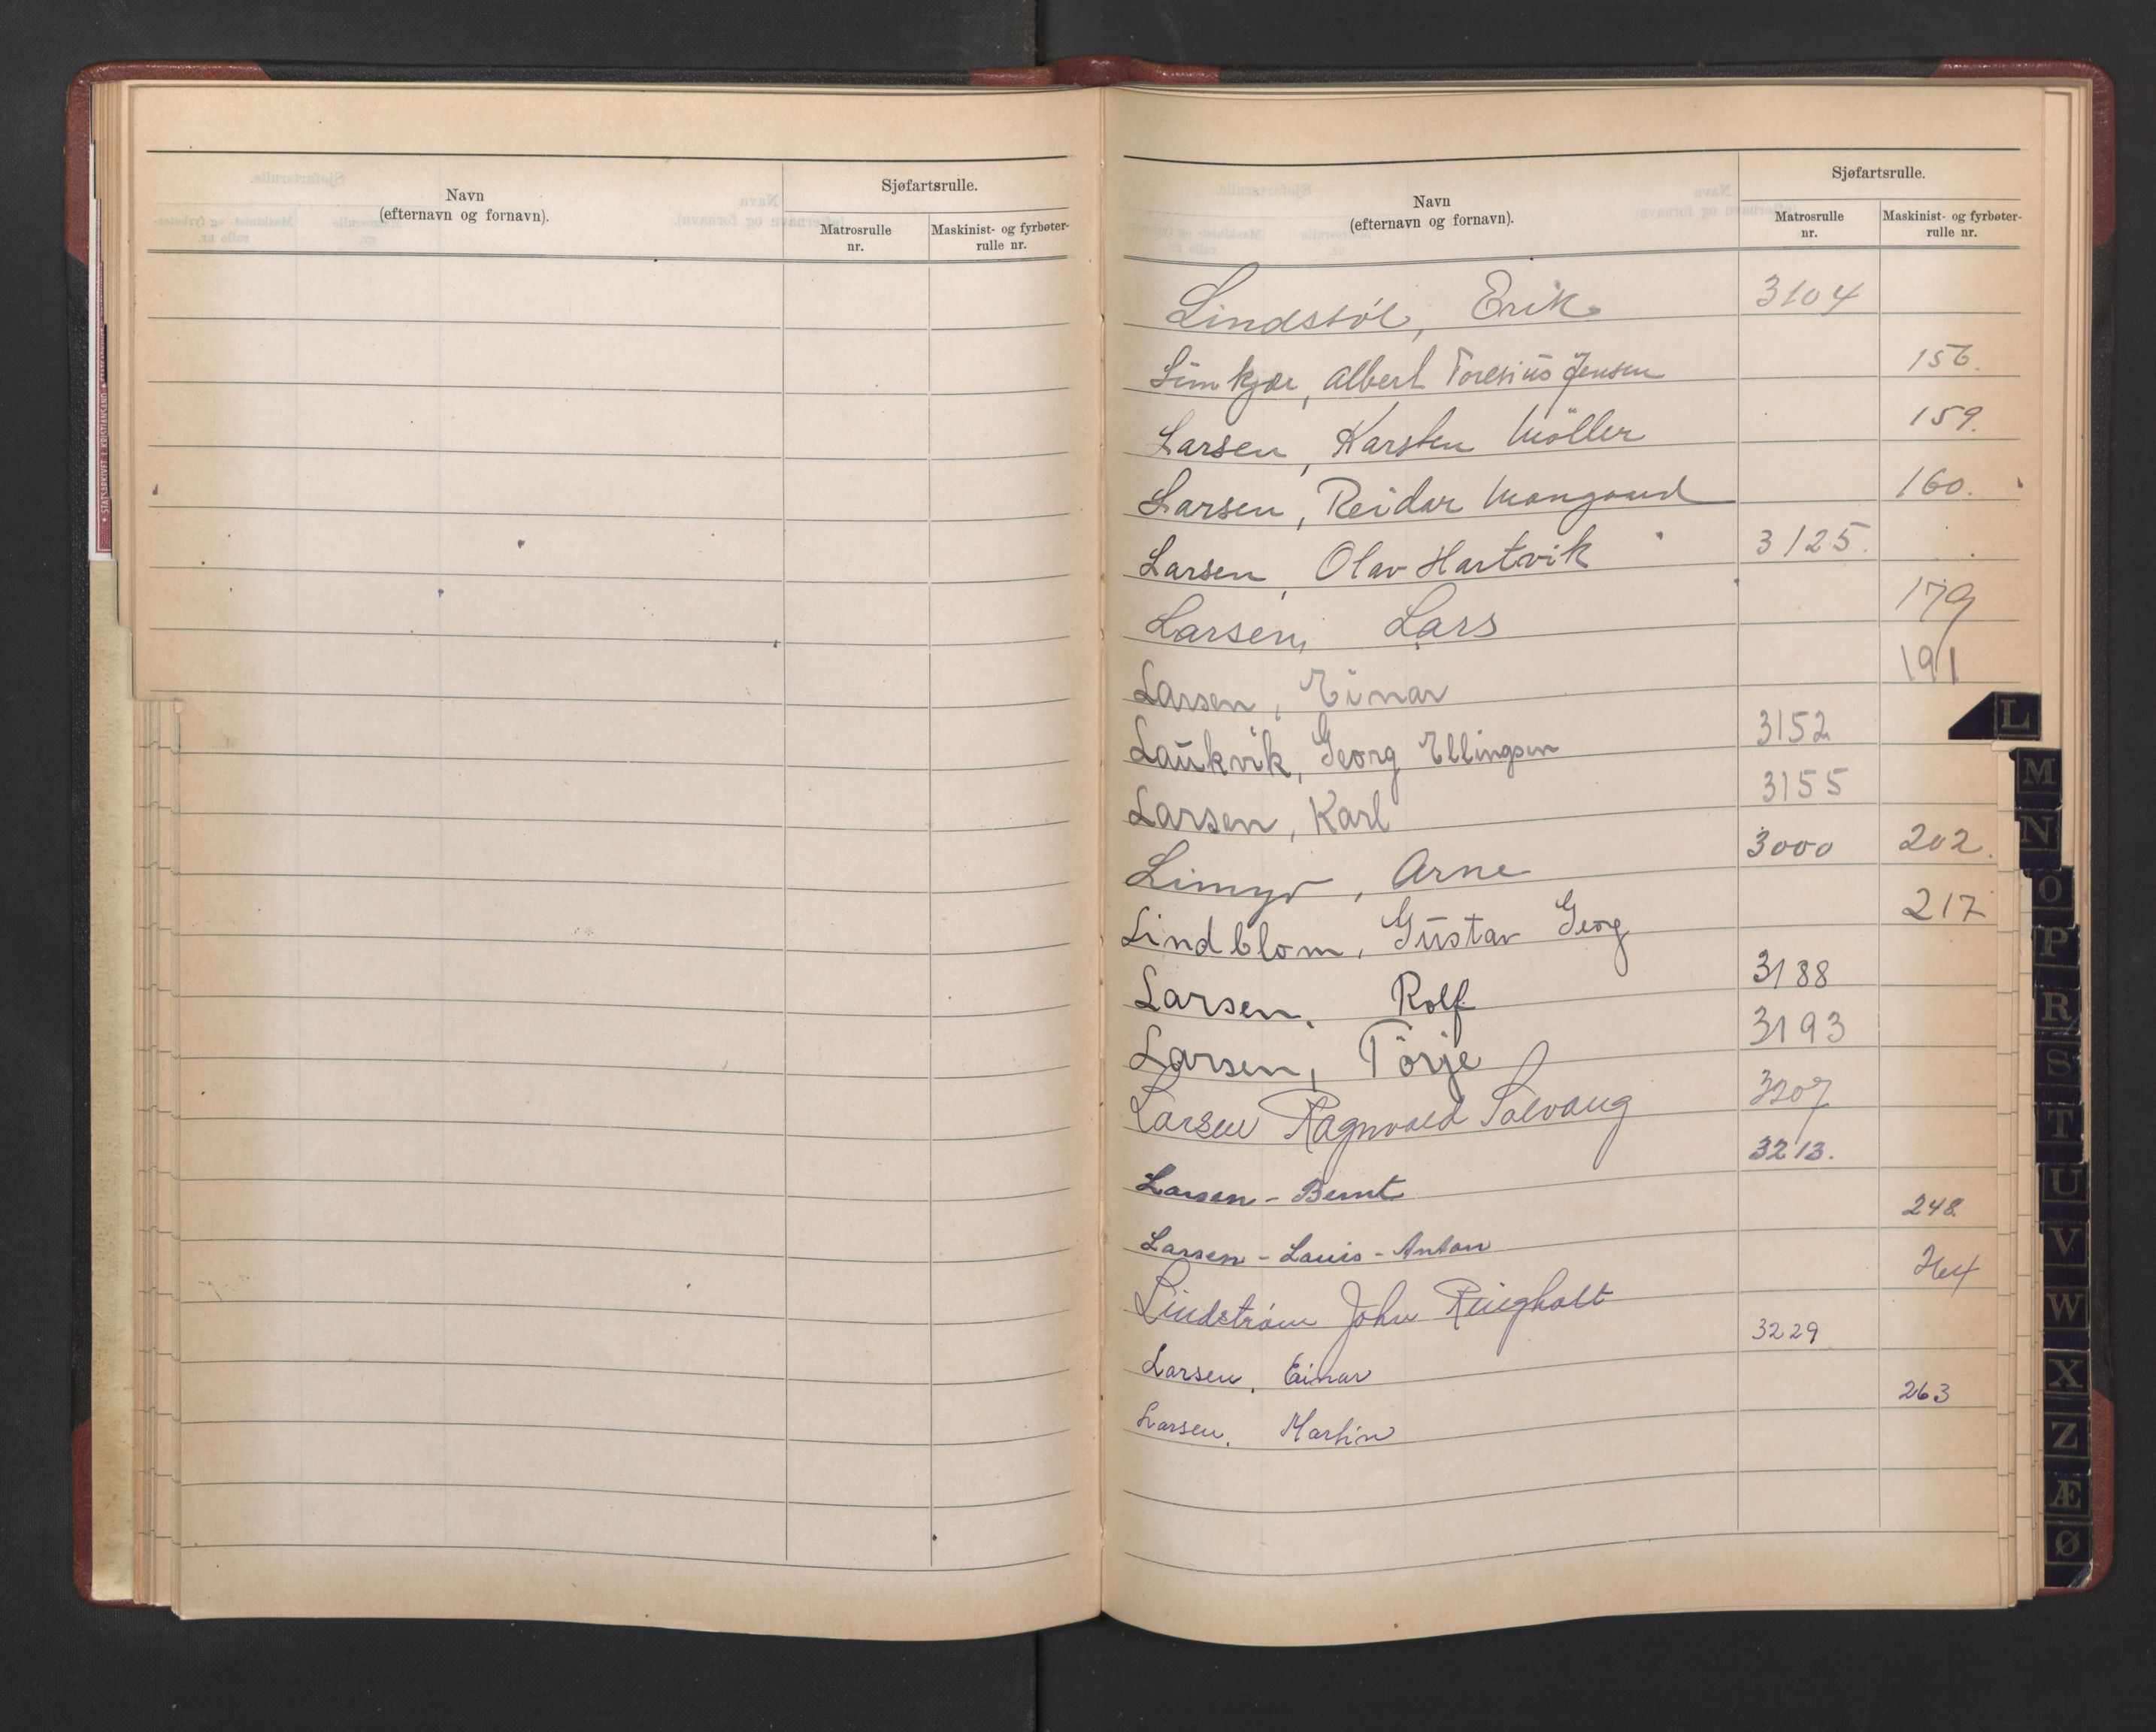 Navn
(efternavn og fornavn).
Sjøfartsrulle.
Matrosrulle
nr.
Maskinist- og fyrbøter-
rulle nr.
Navn
(efternavn og fornavn).
Sjøfartsrulle.
Matrosrulle
nr.
Maskinist- og fyrbøter-
rulle nr.
Lindstöl, Erik 3104
Limkjær, Albert Toresius Jensen 156.
Larsen, Karsten Möller 159.
Larsen, Reidar 160.
Larsen, Olav Hartvik 3125.
Larsen, Lars 179
Larsen, Einar 191
Laukvik, Georg Ellingsen 3152
Larsen, Karl 3155
Limyr, Arne 3000 202.
Lindblom, Gustav Georg 217
Larsen, Rolf 3188
Larsen, Törje 3193
Larsen Ragnvald Solvang 3207
Larsen - Bernt 3213.
Larsen - Louis - Anton 248.
Lindstrøm John Ringholt 264
Larsen, Einar 3229
Larsen, Martin 263
L
M
N
O
P
R
S
T
U
V
W
X
Z
Æ
Ø
STATSARKIVET I KRISTIANSAND